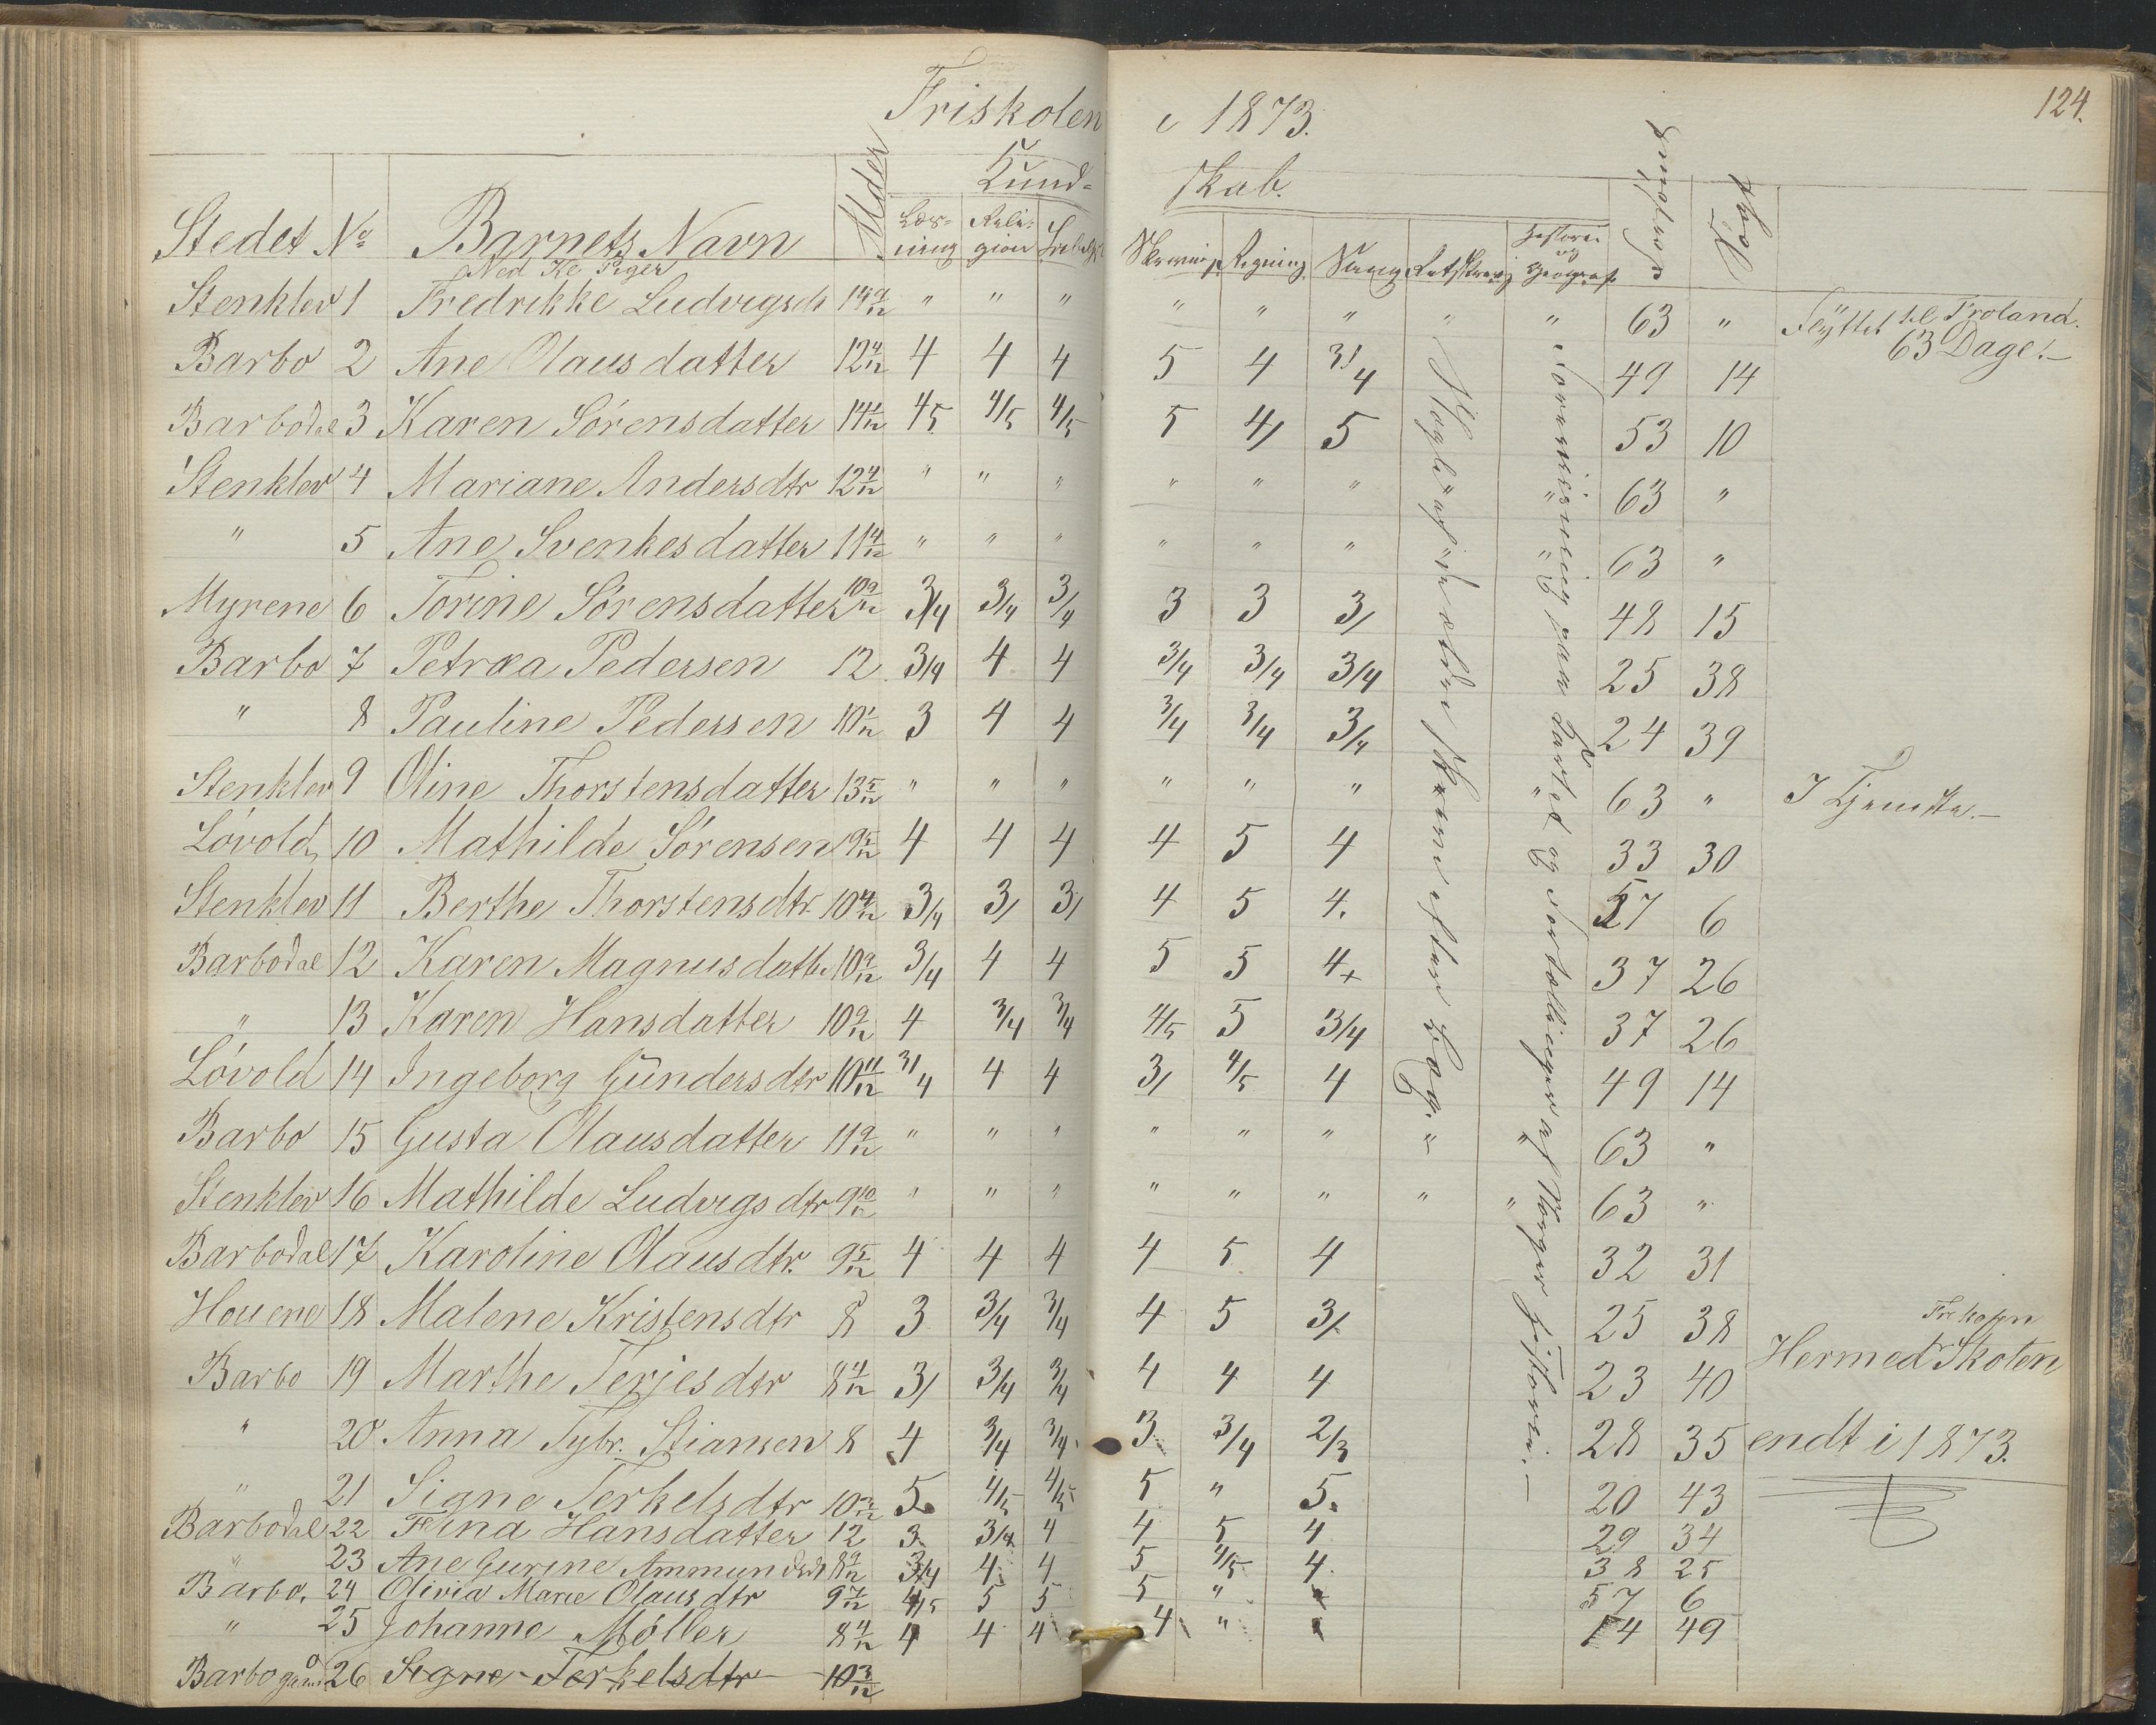 124.
Friskolen i 1873.
Kund- skab.
Stedet No Barnets Navn Alder Læs-ning Reli-gion Skrivning Regning Sang Retskrivg Historie og Geograf. Forsømt Søgt
Ned Kl Piger
Stenklev 1 Fredrikke Ludvigsdt 14 9/12 " " " " " " " " 63 " Flyttet til Froland.
63 Dage.-
Barbo 2 Ane Olausdatter 12 4/12 4 4 4 5 4 3/4 49 14
Barbodal 3 Karen Sörensdatter 14 1/12 4/5 4/5 4/5 5 4/ 5 53 10
Stenklev 4 Mariane Andersdtr 12 4/12 " " " " " " " " 63 "
" 5 Ane Svenkesdatter 11 4/12 " " " " " " " " 63 "
Myrene 6 Torine Sörensdatter 10 9/12 3/4 3/4 3/4 3 3 3/ 48 15
Barbo 7 Petræa Pedersen 12 3/4 4 4 3/4 3/4 3/4 25 38
" 8 Pauline Pedersen 10 1/12 3 4 4 3/4 3/4 3/4 24 39
Stenklev 9 Oline Thorstensdatter 13 5/12 " " " " " " " 63 " I Tjeneste.-
Lövold 10 Mathilde Sörensen 9 5/12 4 4 4 4 5 4 33 30
Stenklev 11 Berthe Thorstensdtr. 10 4/12 3/4 3/ 3/ 4 5 4. 57 6
Barbodal 12 Karen Magnusdatter 10 9/12 3/4 4 4 5 5 4+ 37 26
" 13 Karen Hansdatter 10 9/12 4 3/4 3/4 4/5 5 3/4 37 26
Lövold 14 Ingeborg Gundersdtr 10 11/12 3/4 4 4 3/ 4/5 4 49 14
Barbo 15 Gusta Olausdatter 11 9/12 " " " " " " " " 63 "
Stenklev 16 Mathilde Ludvigsdtr 9 10/12 " " " " " " " " 63 "
Barbodal 17 Karoline Olausdtr. 9 5/12 4 4 4 4 5 4 32 31
Houene 18 Malene Kristensdtr 8 3 3/4 3/4 4 5 3/ 25 38
Barbo 19 Marthe Terjesdtr 8 4/12 3/ 3/4 3/4 4 4 4 23 40 Hermed Skolen
" 20 Anna Tybr. Stiansen 8 4 3/4 3/4 3 3/4 2/3 28 35 endt i 1873.
" 21 Signe Terkelsdtr 10 3/12 5 4/5 4/5 5 " 5. 20 43
Barbodal 22 Elina Hansdatter 12 3 3/4 4 4 5 4 29 34
" 23 Ane Gurine Ammundsdt 8 9/12 3/4 4 4 5 4/5 4 38 25
Barbo. 24 Olivia Marie Olausdtr 9 7/12 4/5 5 5 5 " 57 6
" 25 Johanne Möller 8 4/12 4 4 4 4 " 14 49
Barbo 26 Signe Terkelsdtr 10 3/12